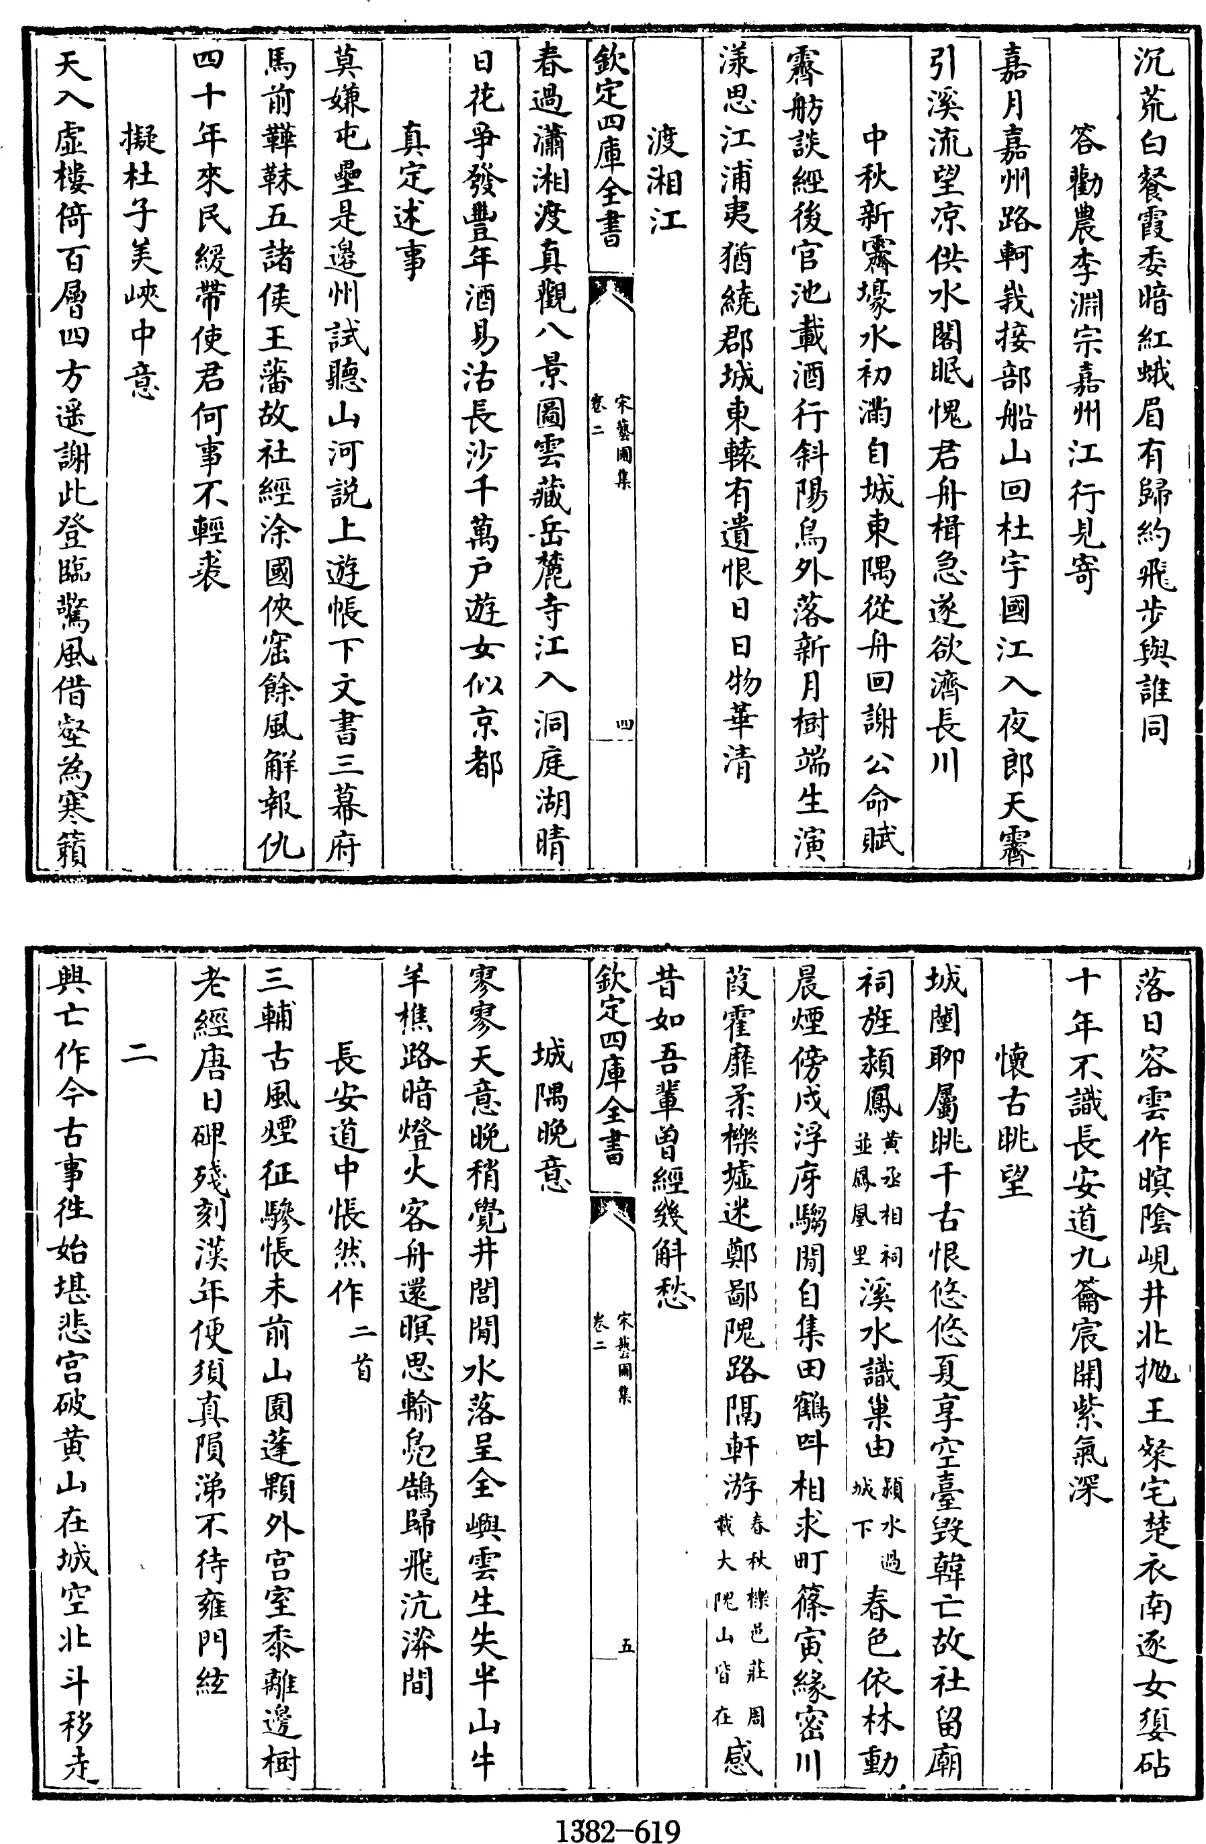 沉荒白餐霞委暗紅蛾眉有歸約飛步與誰同
答勸農李淵宗嘉州江行見寄
嘉月嘉州路軻峩接部船山回杜宇國江入夜郎天霽
引溪流望凉供水閣眠愧君舟楫急遂欲濟長川
中秋新霽壕水初滿自城東隅從舟回謝公命賦
霽舫談經後官池載酒行斜陽鳥外落新月樹端生演
漾思江浦夷猶繞郡城東轅有遺恨日日物華清
渡湘江
欽定四庫全書
宋藝圃集
卷二
四
春過瀟湘渡真觀八景圖雲藏岳麓寺江入洞庭湖晴
日花爭發豐年酒易沽長沙千萬戶遊女似京都
真定述事
莫嫌屯壘是邉州試聽山河説上游帳下文書三幕府
馬前鞾韎五諸侯王藩故社經涂國俠窟餘風解報仇
四十年來民緩帶使君何事不輕裘
擬杜子美峽中意
天入虛樓倚百層四方遥謝此登臨驚風借壑為寒籟
落日容雲作暝陰峴井北抛王粲宅楚衣南逐女嬃砧
十年不識長安道九籥宸開紫氣深
懷古眺望
城闉聊屬眺千古恨悠悠夏享空臺毁韓亡故社留廟
祠旌潁鳳黃丞相祠並鳳凰里溪水識巢由潁水過城下春色依林動
晨煙傍戍浮庌騶閒自集田鶴呌相求町篠寅緣密川
葭霍靡柔櫟墟迷鄭鄙隗路隔軒游春秋櫟邑莊周載大隗山皆在感
昔如吾輩曾經幾斛愁
欽定四庫全書
宋藝圃集
卷二
五
城隅晚意
寥寥天意晚稍覺井閭閒水落呈全嶼雲生失半山牛
羊樵路暗燈火客舟還暝思輸鳧鵠歸飛沆漭間
長安道中悵然作二首
三輔古風煙征驂悵未前山園蓬顆外宫室黍離邊樹
老經唐日碑殘刻漢年便須真隕涕不待雍門絃
二
興亡作今古事徃始堪悲宫破黄山在城空北斗移走
1382-619